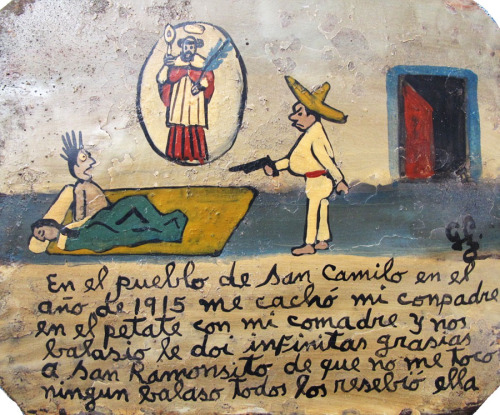 En el pueblo de San Camilo en el
año de 1915 me cachó mi conpadre
en el petate con mi comadre y nos
balasio le doi infinitas grasias
a San Ramonsito de que no me toco
ningun balaso todos los resebio ella